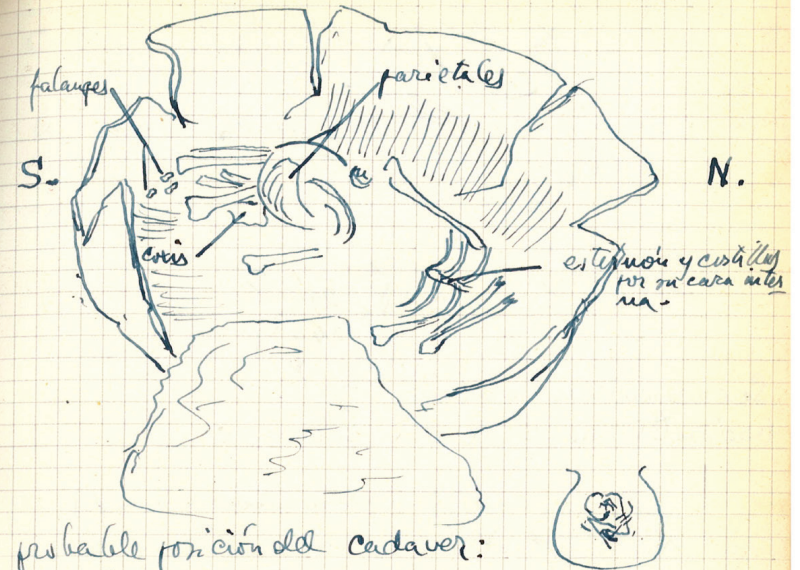 falanges
parietales
S.
N.
coxis
esternón y costillas
por su cara inter
na.
probable posición del cadaver: